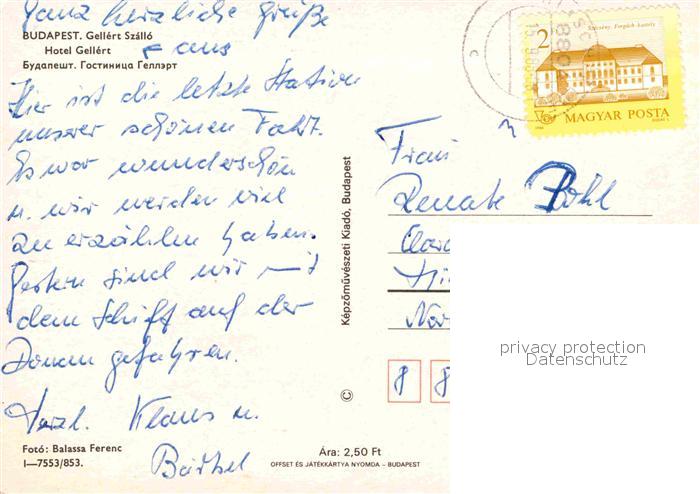 Ganz herzliche Grüße
BUDAPEST. Gellért Szálló
Hotel Gellért
Будапешт. Гостиница Геллэрт
aus
Hier ist die letzte Station
unserer schönen Fahrt.
Es war wunderschön
u. wir werden viel
zu erzählen haben.
Gestern sind wir mit
dem Schiff auf der
Donau gefahren.
Herzl. Klaus u.
Bärbel
Fotó: Balassa Ferenc
I—7553/853.
Képzőművészeti Kiadó, Budapest
©
Ára: 2,50 Ft
OFFSET ÉS JÁTÉKKÁRTYA NYOMDA – BUDAPEST
2
Szécsény. Forgách-kastély
MAGYAR POSTA
Frau
Renate
8 8
privacy protection
Datenschutz